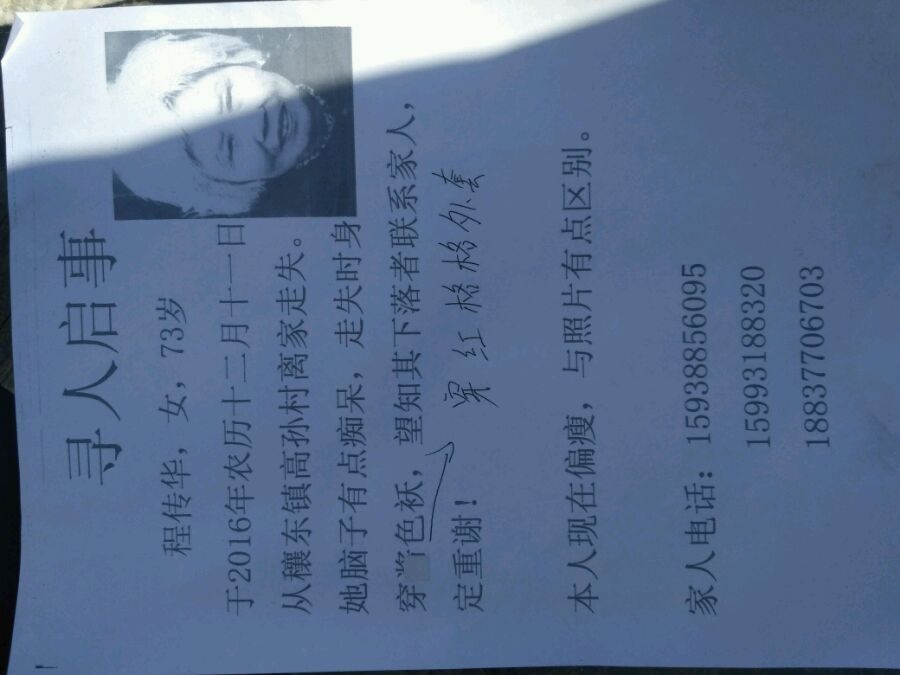 寻人启事
程传华，女，73岁
于2016年农历十二月十一日
从穰东镇高孙村离家走失。
她脑子有点痴呆，走失时身
穿 色袄，望知其下落者联系家人，
穿红格格外套
定重谢！
本人现在偏瘦，与照片有点区别。
家人电话：15938856095
15993188320
18837706703